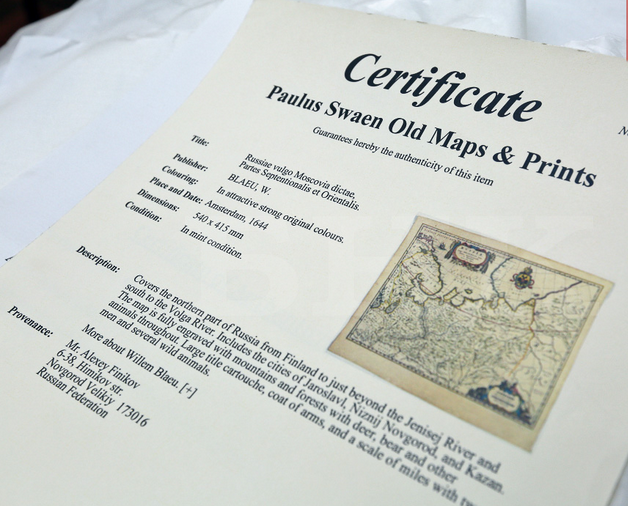 Certificate
Paulus Swaen Old Maps & Prints
Guarantees hereby the authenticity of this item
Title: Russiae vulgo Moscovia dictae,
Partes Septentionalis et Orientalis.
Publisher: BLAEU, W.
Colouring: In attractive strong original colours.
Place and Date: Amsterdam, 1644
Dimensions: 540 x 415 mm
Condition: In mint condition.
Description: Covers the northern part of Russia from Finland to just beyond the Jenisej River and
south to the Volga River. Includes the cities of Jaroslavl, Niznij Novgorod, and Kazan.
The map is fully engraved with mountains and forests with deer, bear and other
animals throughout. Large title cartouche, coat of arms, and a scale of miles with
men and several wild animals.
More about Willem Blaeu. [+]
Provenance: Mr. Alexey Finikov
6-38, Himikov str.
Novgorod Velikiy 173016
Russian Federation